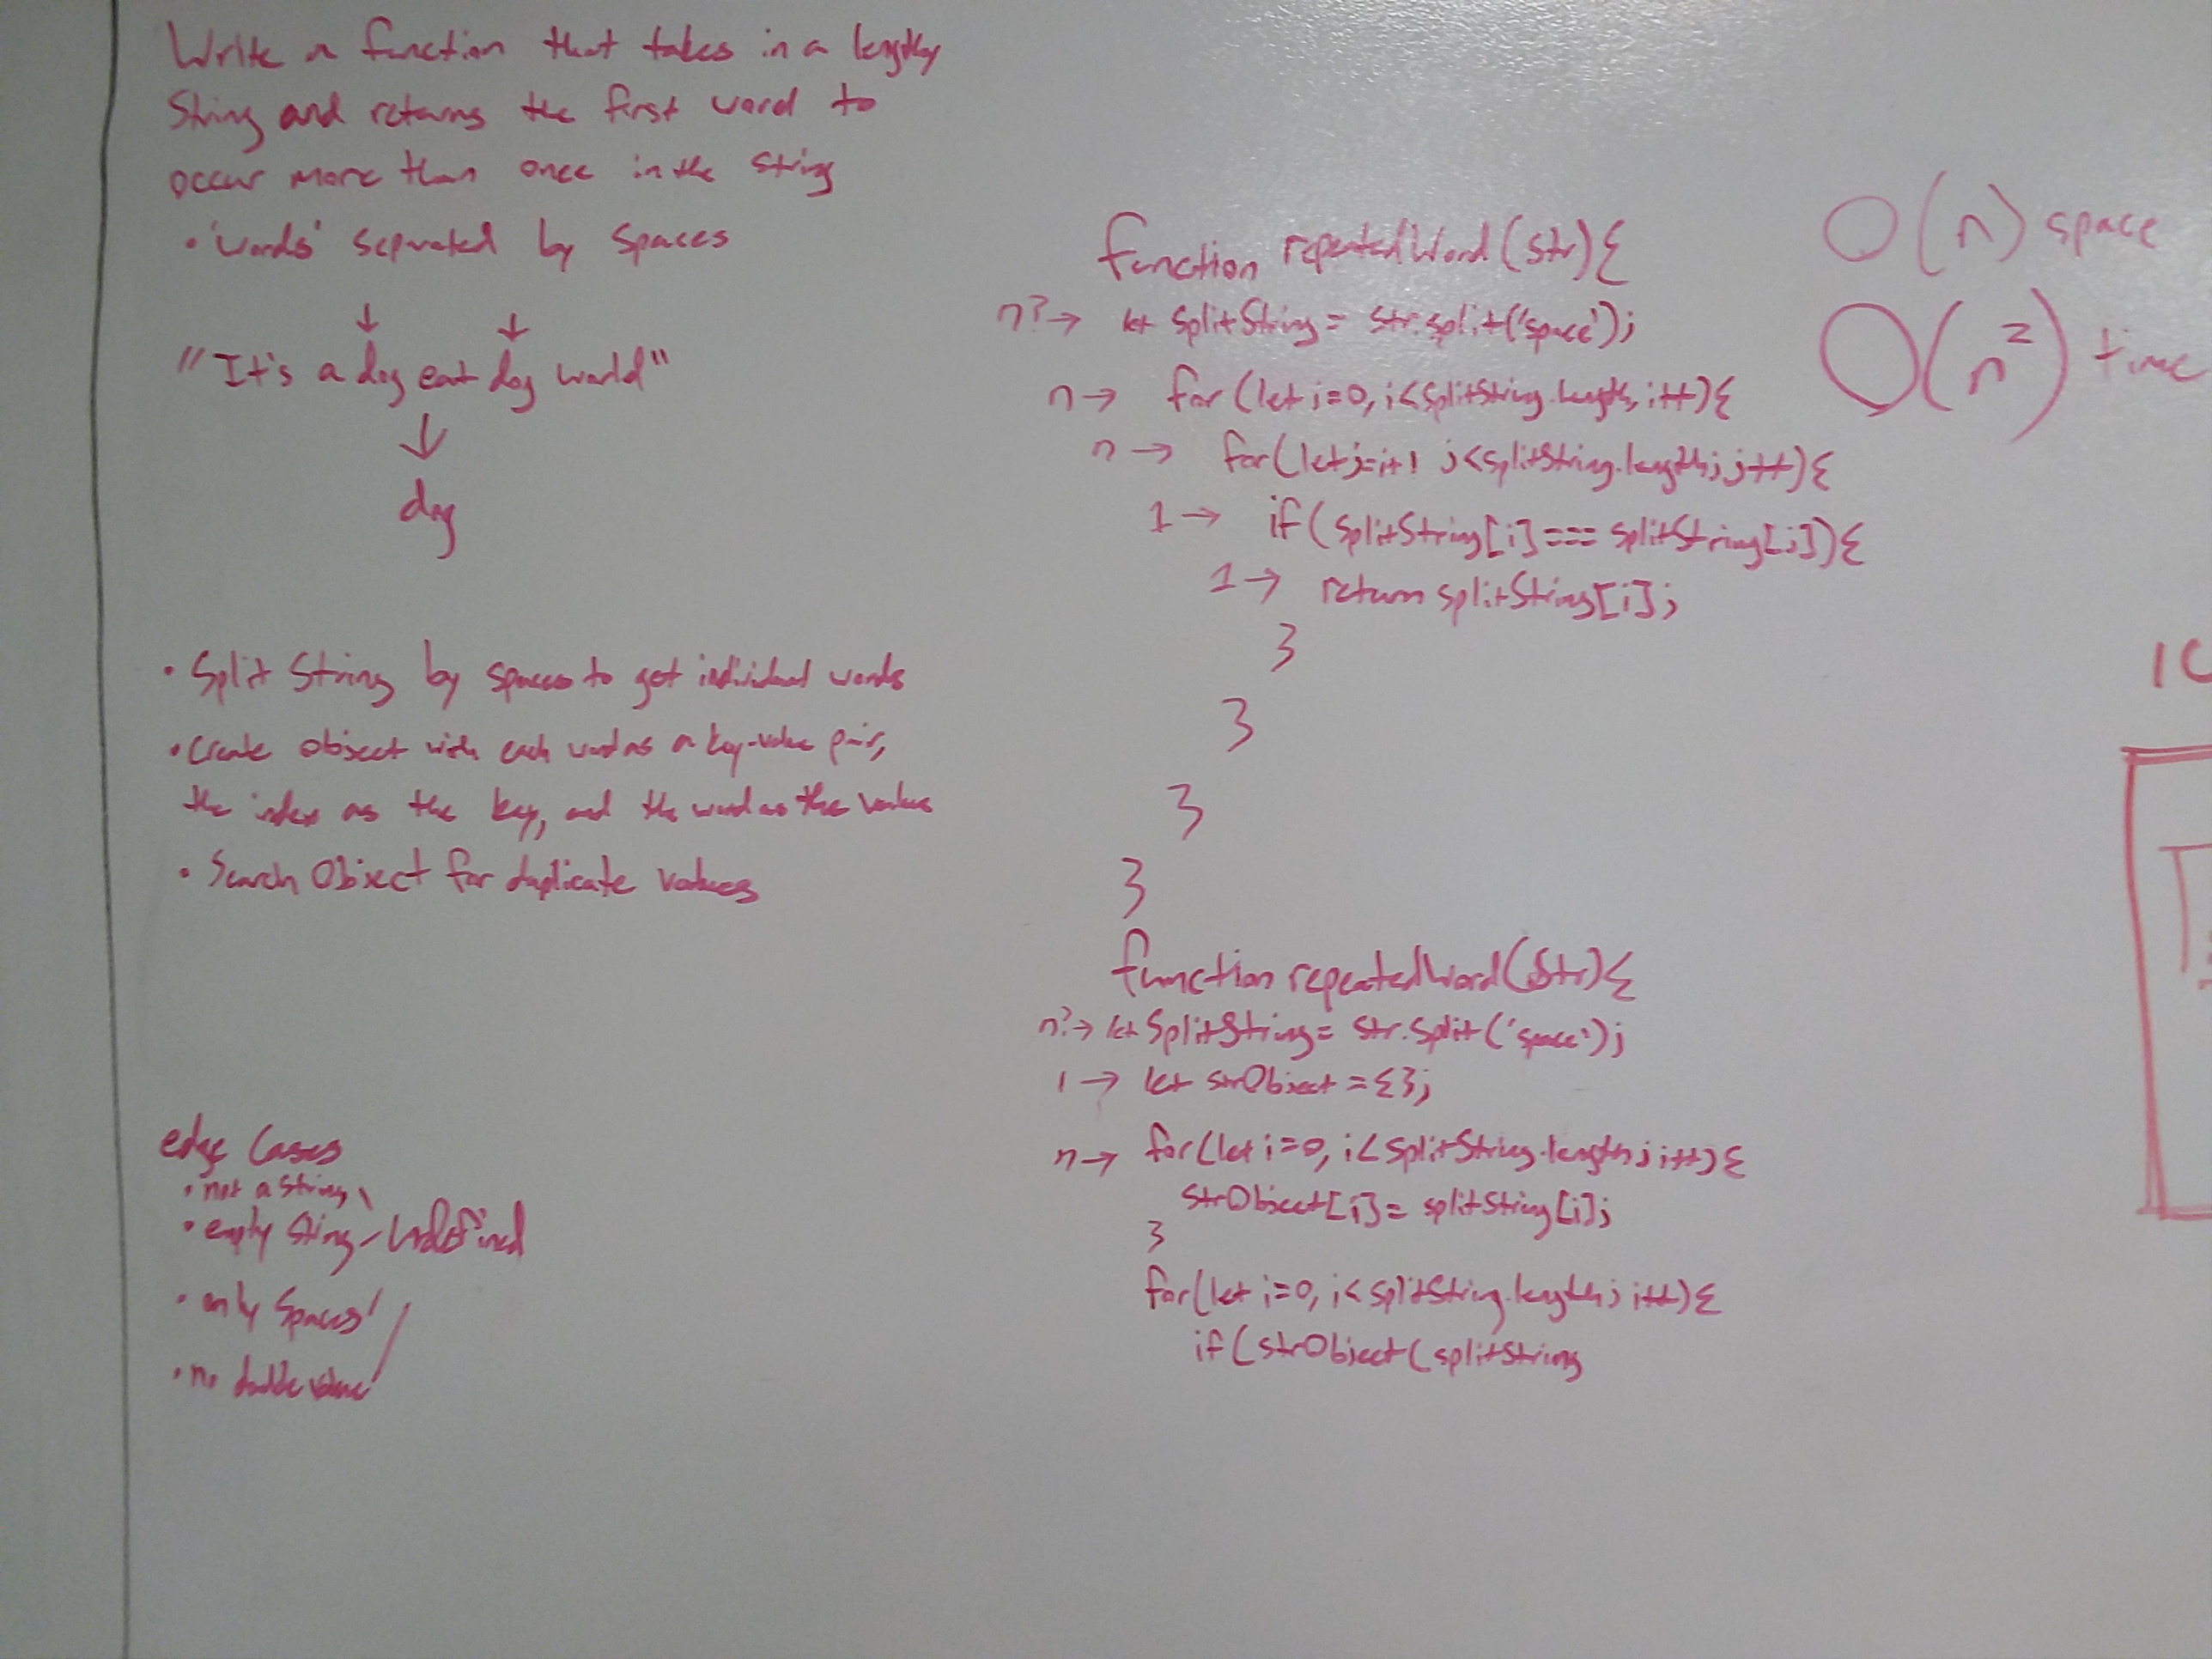 Write a function that takes in a lengthy
String and returns the first word to
occur more than once in the string
• 'words' seperated by spaces
↓ ↓
"It's a dog eat dog world"
↓
dog
• Split String by spaces to get individual words
• Create object with each word as a key-value pair,
the index as the key, and the word as the value
• Search Object for duplicate values
edge cases
• not a string \
• empty string - Undefined
• only spaces /
• no double value /
function repeatedWord(str){
n? → let splitString = str.split('space');
n → for(let i=0, i<splitString.length, i++){
n → for(let j=i+1 j<splitString.length; j++){
1 → if(splitString[i] === splitString[j]){
1 → return splitString[i];
}
}
}
}
function repeatedWord(str){
n? → let splitString = str.split('space');
1 → let strObject = {};
n → for(let i=0, i<splitString.length; i++){
strObject[i] = splitString[i];
}
for(let i=0, i<splitString.length; i++){
if(strObject(splitString
O(n) space
O(n²) time